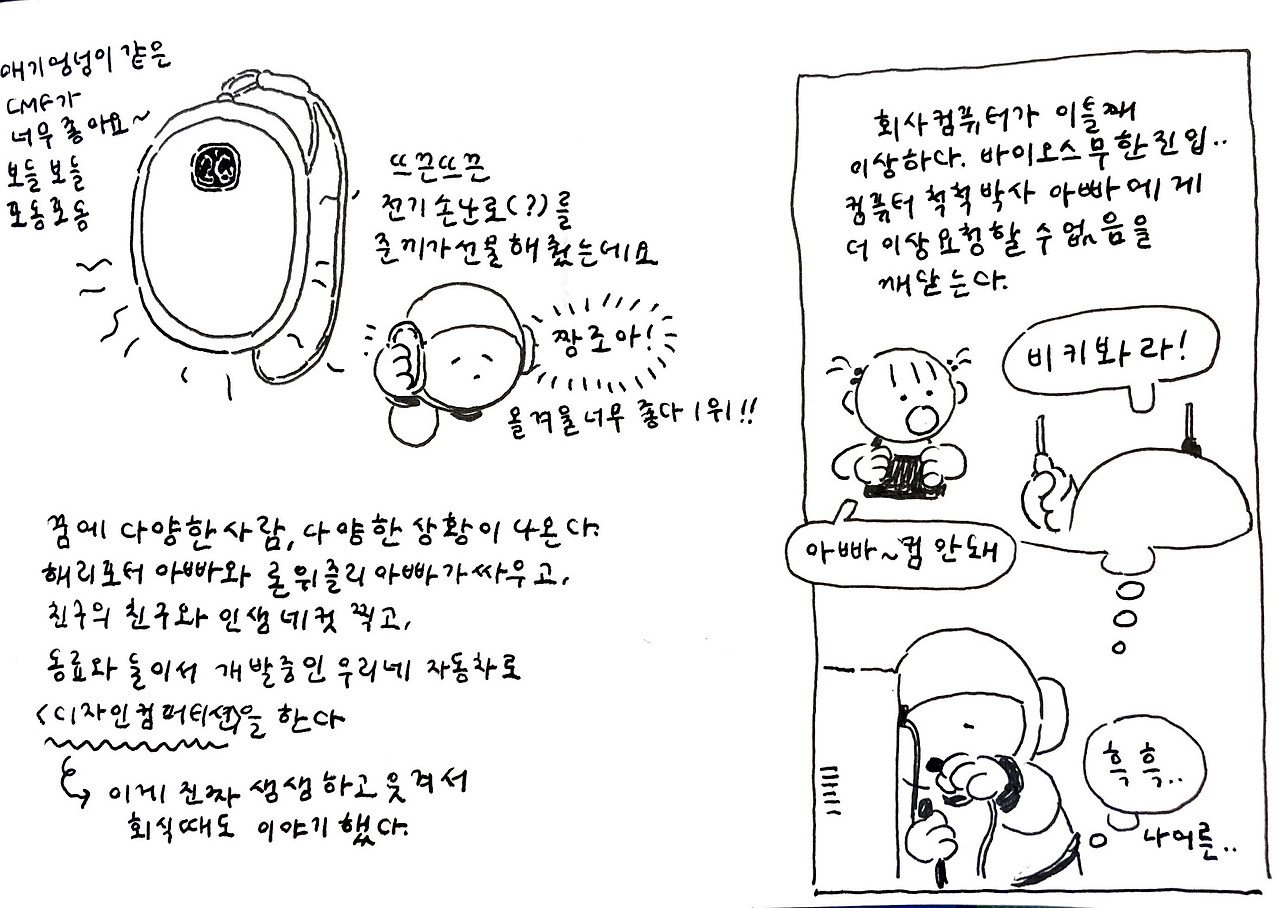 애기엉덩이 같은
CMF가
너무 좋아요~
보들보들
포동포동
26
뜨끈뜨끈
전기손난로(?)를
준끼가선물해줬는데요
짱조아!
올겨울너무 좋다 1위!!
꿈에 다양한사람, 다양한 상황이 나온다.
해리포터 아빠와 론위즐리 아빠가싸우고,
친구의 친구와 인생네컷 찍고,
동료와 둘이서 개발중인 우리네 자동차로
<디자인컴퍼티션>을 한다
이게 진짜 생생하고웃겨서
회식때도 이야기했다.
회사컴퓨터가 이틀째
이상하다. 바이오스무한진입..
컴퓨터 척척박사 아빠에게
더 이상요청할 수 없음을
깨닫는다.
비키봐라!
아빠~컴 안돼
흑흑..
나어른..